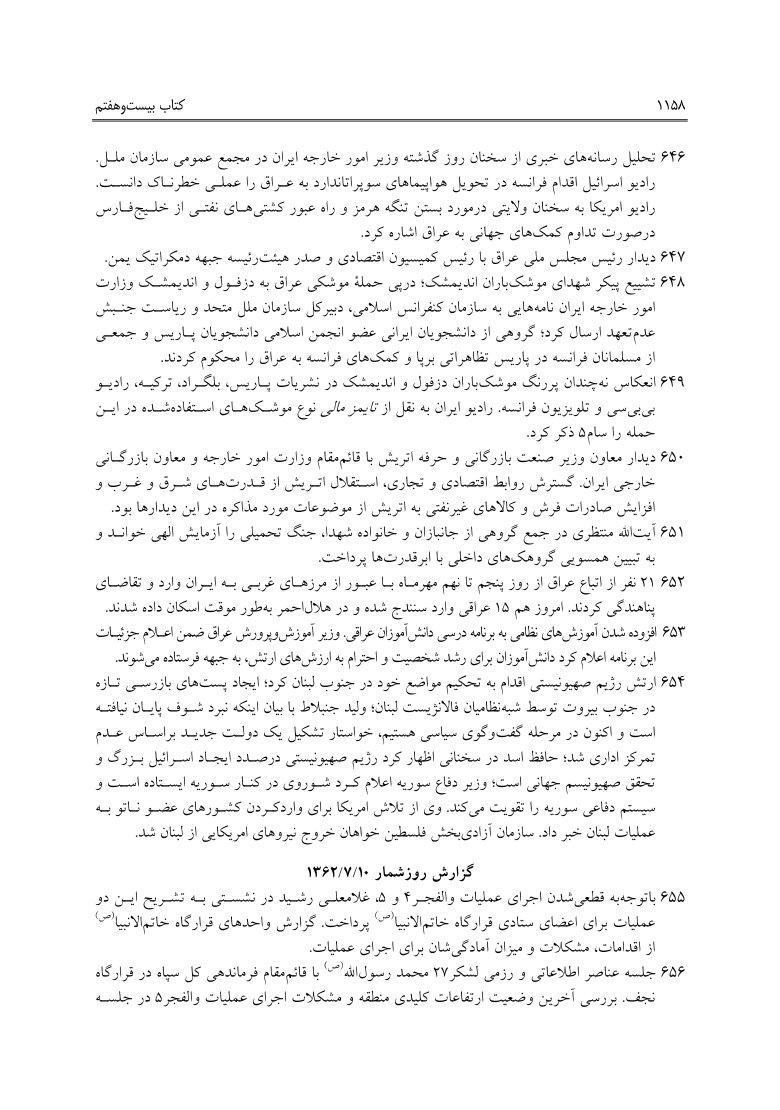 ۱۱۵۸
کتاب بیست‌وهفتم
۶۴۶ تحلیل رسانه‌های خبری از سخنان روز گذشته وزیر امور خارجه ایران در مجمع عمومی سازمان ملـل.
رادیو اسرائیل اقدام فرانسه در تحویل هواپیماهای سوپراتاندارد به عـراق را عملـی خطرنـاک دانسـت.
رادیو امریکا به سخنان ولایتی درمورد بستن تنگه هرمز و راه عبور کشتی‌هـای نفتـی از خلـیج‌فـارس
درصورت تداوم کمک‌های جهانی به عراق اشاره کرد.
۶۴۷ دیدار رئیس مجلس ملی عراق با رئیس کمیسیون اقتصادی و صدر هیئت‌رئیسه جبهه دمکراتیک یمن.
۶۴۸ تشییع پیکر شهدای موشک‌باران اندیمشک؛ درپی حملهٔ موشکی عراق به دزفـول و اندیمشـک وزارت
امور خارجه ایران نامه‌هایی به سازمان کنفرانس اسلامی، دبیرکل سازمان ملل متحد و ریاسـت جنـبش
عدم‌تعهد ارسال کرد؛ گروهی از دانشجویان ایرانی عضو انجمن اسلامی دانشجویان پـاریس و جمعـی
از مسلمانان فرانسه در پاریس تظاهراتی برپا و کمک‌های فرانسه به عراق را محکوم کردند.
۶۴۹ انعکاس نه‌چندان پررنگ موشک‌باران دزفول و اندیمشک در نشریات پـاریس، بلگـراد، ترکیـه، رادیـو
بی‌بی‌سی و تلویزیون فرانسه. رادیو ایران به نقل از تایمز مالی نوع موشـک‌هـای اسـتفاده‌شـده در ایـن
حمله را سام۵ ذکر کرد.
۶۵۰ دیدار معاون وزیر صنعت بازرگانی و حرفه اتریش با قائم‌مقام وزارت امور خارجه و معاون بازرگـانی
خارجی ایران. گسترش روابط اقتصادی و تجاری، اسـتقلال اتـریش از قـدرت‌هـای شـرق و غـرب و
افزایش صادرات فرش و کالاهای غیرنفتی به اتریش از موضوعات مورد مذاکره در این دیدارها بود.
۶۵۱ آیت‌الله منتظری در جمع گروهی از جانبازان و خانواده شهدا، جنگ تحمیلی را آزمایش الهی خوانـد و
به تبیین همسویی گروهک‌های داخلی با ابرقدرت‌ها پرداخت.
۶۵۲ ۲۱ نفر از اتباع عراق از روز پنجم تا نهم مهرمـاه بـا عبـور از مرزهـای غربـی بـه ایـران وارد و تقاضـای
پناهندگی کردند. امروز هم ۱۵ عراقی وارد سنندج شده و در هلال‌احمر به‌طور موقت اسکان داده شدند.
۶۵۳ افزوده شدن آموزش‌های نظامی به برنامه درسی دانش‌آموزان عراقی. وزیر آموزش‌وپرورش عراق ضمن اعـلام جزئیـات
این برنامه اعلام کرد دانش‌آموزان برای رشد شخصیت و احترام به ارزش‌های ارتش، به جبهه فرستاده می‌شوند.
۶۵۴ ارتش رژیم صهیونیستی اقدام به تحکیم مواضع خود در جنوب لبنان کرد؛ ایجاد پست‌های بازرسـی تـازه
در جنوب بیروت توسط شبه‌نظامیان فالانژیست لبنان؛ ولید جنبلاط با بیان اینکه نبرد شـوف پایـان نیافتـه
است و اکنون در مرحله گفت‌وگوی سیاسی هستیم، خواستار تشکیل یک دولـت جدیـد براسـاس عـدم
تمرکز اداری شد؛ حافظ اسد در سخنانی اظهار کرد رژیم صهیونیستی درصـدد ایجـاد اسـرائیل بـزرگ و
تحقق صهیونیسم جهانی است؛ وزیر دفاع سوریه اعلام کـرد شـوروی در کنـار سـوریه ایسـتاده اسـت و
سیستم دفاعی سوریه را تقویت می‌کند. وی از تلاش امریکا برای واردکـردن کشـورهای عضـو نـاتو بـه
عملیات لبنان خبر داد. سازمان آزادی‌بخش فلسطین خواهان خروج نیروهای امریکایی از لبنان شد.
گزارش روزشمار ۱۳۶۲/۷/۱۰
۶۵۵ باتوجه‌به قطعی‌شدن اجرای عملیات والفجـر۴ و ۵، غلامعلـی رشـید در نشسـتی بـه تشـریح ایـن دو
عملیات برای اعضای ستادی قرارگاه خاتم‌الانبیا(ص) پرداخت. گزارش واحدهای قرارگاه خاتم‌الانبیا(ص)
از اقدامات، مشکلات و میزان آمادگی‌شان برای اجرای عملیات.
۶۵۶ جلسه عناصر اطلاعاتی و رزمی لشکر۲۷ محمد رسول‌الله(ص) با قائم‌مقام فرماندهی کل سپاه در قرارگاه
نجف. بررسی آخرین وضعیت ارتفاعات کلیدی منطقه و مشکلات اجرای عملیات والفجر۵ در جلسـه